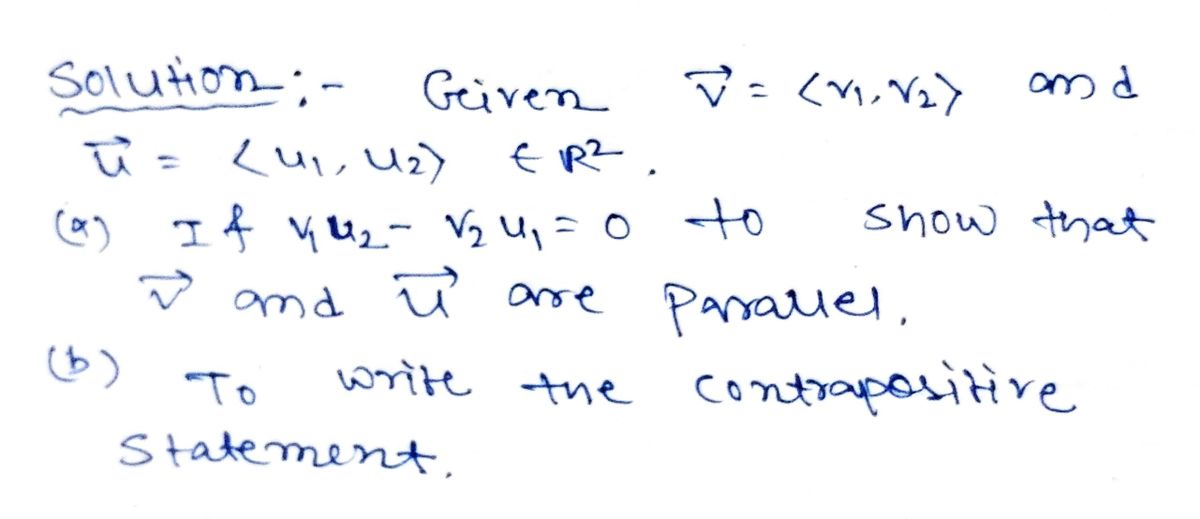 Solution:- Given v⃗ = <v₁, v₂> and
u⃗ = <u₁, u₂> ∈ R².
(a) If v₁u₂ - v₂u₁ = 0 to show that
v⃗ and u⃗ are parallel.
(b) To write the contrapositive
statement.